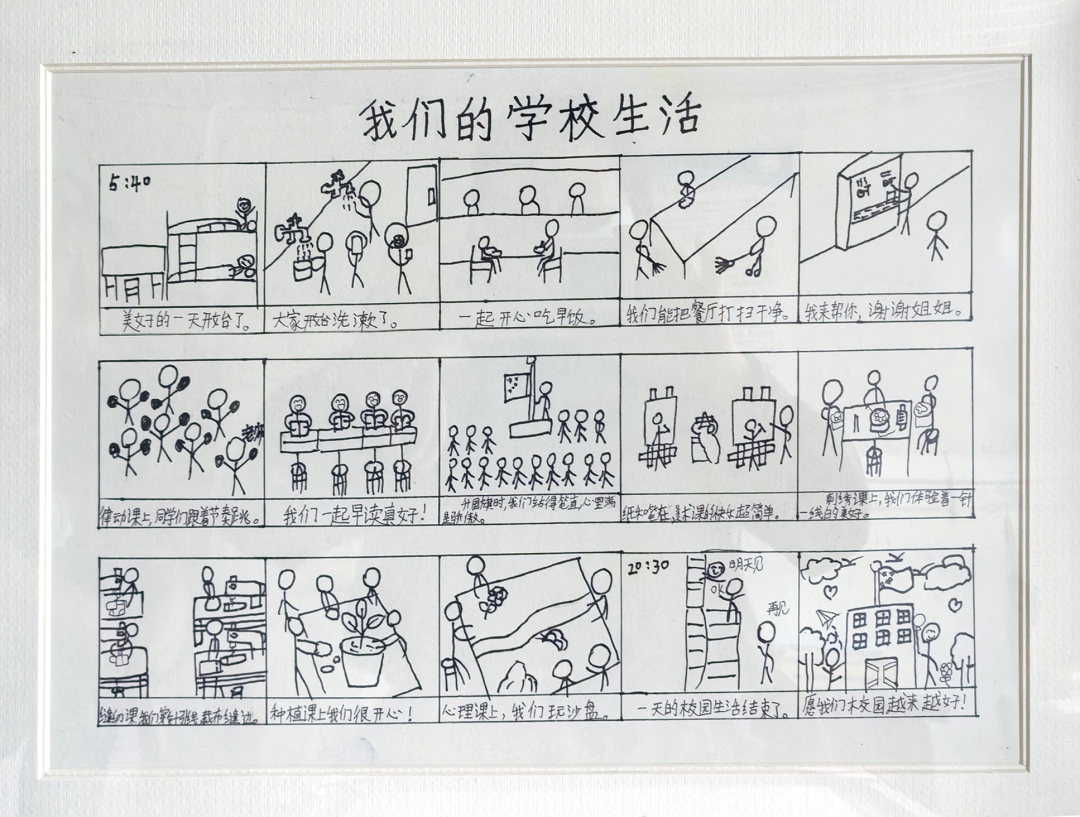 我们的学校生活
5:40
美好的一天开始了。
大家开始洗漱了。
一起开心吃早饭。
我们能把餐厅打扫干净。
我来帮你,谢谢姐姐。
老师
律动课上,同学们跟着节奏起跳。
我们一起早读真好!
升国旗时,我们站得笔直,心里满
是骄傲。
纸和笔在,美术课的快乐超简单。
刺绣课上,我们体验着一针
一线的美好。
缝纫课我们穿针引线,裁布缝边。
种植课上我们很开心!
心理课上,我们玩沙盘。
20:30
明天见
OK
再见
一天的校园生活结束了。
愿我们木校园越来越好!